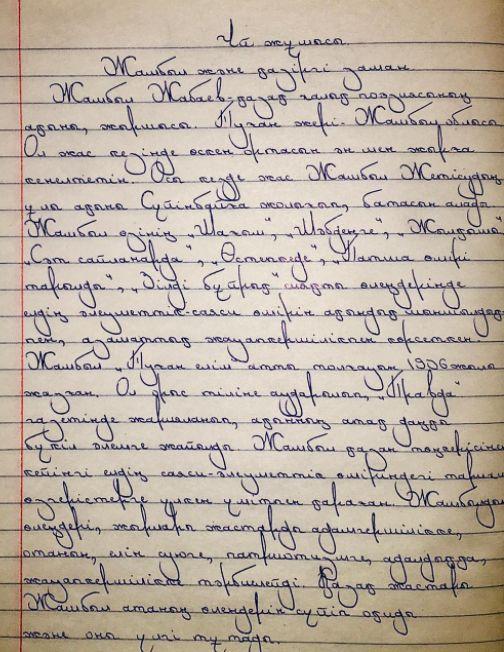 Үй жұмысы.
Жамбыл және қазіргі заман.
Жамбыл Жабаев-қазақ халық поэзиясының
ақыны, жыршысы. Туған жері-Жамбыл облысы
Ол жас кезінде өскен ортасын ән мен жырға
кенелтетін. Осы кезде жас Жамбыл Жетісудың
ұлы ақыны Сүйінбайға жолығып, батасын алады.
Жамбыл өзінің „Шағым", „Шәбденге", „Жылқышы",
„Сәт сайланарда", „Өстепкеде", „Патша әмірі
тарылды", „Зілді бұйрық" атты өлеңдерінде
елдің әлеуметтік-саяси өмірін ақындық
пен, азаматтық жауапкершілікпен көрсеткен.
Жамбыл „Туған елім атты толғауын 1936 жылы
жазған. Ол орыс тіліне аударылып, „Правда"
газетінде жарияланып, ақынның атақ даңқы
бүкіл әлемге жайылды Жамбыл қазан төңкерісінен
кейінгі елдің саяси-әлеуметтік өміріндегі тарихи
өзгерістерге үлкен үмітпен қараған. Жамбылдың
өлеңдері, жырлары жастарды адамгершілікке,
отанын, елін сүюге, патриотизмге, адалдыққа,
жауапкершілікке тәрбиелейді. Қазақ жастары
Жамбыл атаның өлендерін сүйіп оқиды
және оны үлгі тұтады.